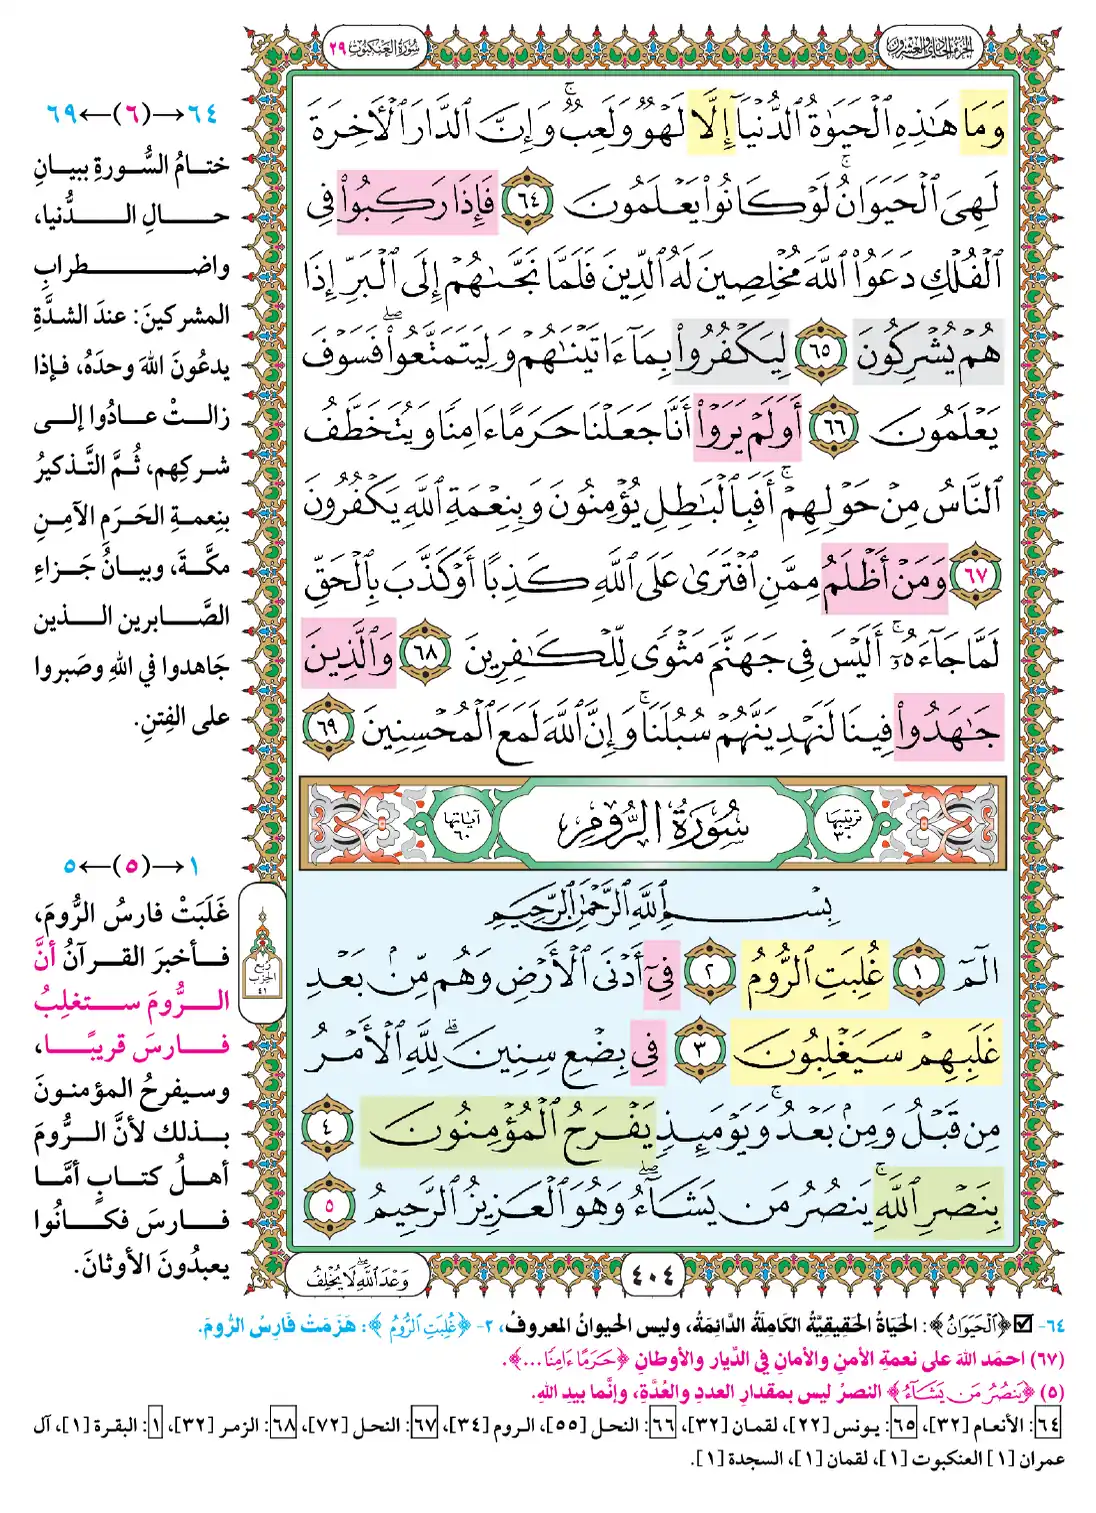 الجزء الحادي والعشرون
سورة العنكبوت ٢٩
وَمَا هَٰذِهِ ٱلْحَيَوٰةُ ٱلدُّنْيَآ إِلَّا لَهْوٌ وَلَعِبٌ ۚ وَإِنَّ ٱلدَّارَ ٱلْأَخِرَةَ
لَهِىَ ٱلْحَيَوَانُ ۚ لَوْ كَانُوا۟ يَعْلَمُونَ ٦٤ فَإِذَا رَكِبُوا۟ فِى
ٱلْفُلْكِ دَعَوُا۟ ٱللَّهَ مُخْلِصِينَ لَهُ ٱلدِّينَ فَلَمَّا نَجَّىٰهُمْ إِلَى ٱلْبَرِّ إِذَا
هُمْ يُشْرِكُونَ ٦٥ لِيَكْفُرُوا۟ بِمَآ ءَاتَيْنَٰهُمْ وَلِيَتَمَتَّعُوا۟ ۖ فَسَوْفَ
يَعْلَمُونَ ٦٦ أَوَلَمْ يَرَوْا۟ أَنَّا جَعَلْنَا حَرَمًا ءَامِنًا وَيُتَخَطَّفُ
ٱلنَّاسُ مِنْ حَوْلِهِمْ ۚ أَفَبِٱلْبَٰطِلِ يُؤْمِنُونَ وَبِنِعْمَةِ ٱللَّهِ يَكْفُرُونَ
٦٧ وَمَنْ أَظْلَمُ مِمَّنِ ٱفْتَرَىٰ عَلَى ٱللَّهِ كَذِبًا أَوْ كَذَّبَ بِٱلْحَقِّ
لَمَّا جَآءَهُۥٓ ۚ أَلَيْسَ فِى جَهَنَّمَ مَثْوًى لِّلْكَٰفِرِينَ ٦٨ وَٱلَّذِينَ
جَٰهَدُوا۟ فِينَا لَنَهْدِيَنَّهُمْ سُبُلَنَا ۚ وَإِنَّ ٱللَّهَ لَمَعَ ٱلْمُحْسِنِينَ ٦٩
ترتيبها ٣٠ سُورَةُ الرُّومِ آياتها ٦٠
بِسْمِ ٱللَّهِ ٱلرَّحْمَٰنِ ٱلرَّحِيمِ
الٓمٓ ١ غُلِبَتِ ٱلرُّومُ ٢ فِىٓ أَدْنَى ٱلْأَرْضِ وَهُم مِّنۢ بَعْدِ
غَلَبِهِمْ سَيَغْلِبُونَ ٣ فِى بِضْعِ سِنِينَ ۗ لِلَّهِ ٱلْأَمْرُ
مِن قَبْلُ وَمِنۢ بَعْدُ ۚ وَيَوْمَئِذٍ يَفْرَحُ ٱلْمُؤْمِنُونَ ٤
بِنَصْرِ ٱللَّهِ ۚ يَنصُرُ مَن يَشَآءُ ۖ وَهُوَ ٱلْعَزِيزُ ٱلرَّحِيمُ ٥
٤٠٤
وَعْدَ ٱللَّهِ ۖ لَا يُخْلِفُ
٦٤→(٦)←٦٩
ختامُ السُّورةِ ببيانِ
حالِ الدُّنيا،
واضطرابِ
المشركينَ: عندَ الشدَّةِ
يدعُونَ اللهَ وحدَهُ، فإذا
زالتْ عادُوا إلى
شركِهم، ثُمَّ التَّذكيرُ
بنِعمةِ الحَرَمِ الآمِنِ
مكَّةَ، وبيانُ جَزاءِ
الصَّابرين الذين
جَاهدوا في اللهِ وصَبروا
على الفِتنِ.
١→(٥)←٥
غَلَبَتْ فارسُ الرُّومَ،
فأخبرَ القرآنُ أنَّ
الرُّومَ ستغلِبُ
فارسَ قريبًا،
وسيفرحُ المؤمنونَ
بذلك لأنَّ الرُّومَ
أهلُ كتابٍ أمَّا
فارسَ فكانُوا
يعبدُونَ الأوثانَ.
ربع
الحزب
٤١
٦٤- ☑ ﴿ٱلْحَيَوَانُ﴾: الحَيَاةُ الحَقِيقِيَّةُ الكَامِلَةُ الدَّائِمَةُ، وليس الحيوانُ المعروفُ، ٢- ﴿غُلِبَتِ ٱلرُّومُ﴾: هَزَمَتْ فَارِسُ الرُّومَ.
(٦٧) احمَد اللهَ على نعمةِ الأمنِ والأمانِ في الدِّيار والأوطانِ ﴿حَرَمًا ءَامِنًا...﴾.
(٥) ﴿يَنصُرُ مَن يَشَآءُ﴾ النصرُ ليس بمقدارِ العددِ والعُدَّةِ، وإنَّما بيدِ اللهِ.
٦٤: الأنعام [٣٢]، ٦٥: يونس [٢٢]، لقمان [٣٢]، ٦٦: النحل [٥٥]، الروم [٣٤]، ٦٧: النحل [٧٢]، ٦٨: الزمر [٣٢]، ١: البقرة [١]، آل
عمران [١] العنكبوت [١]، لقمان [١]، السجدة [١].